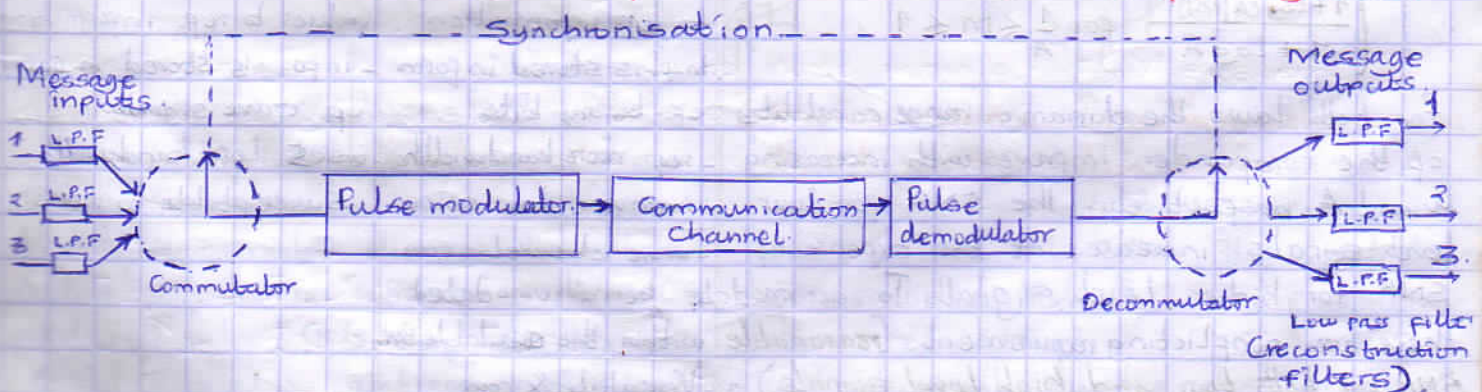 Synchronisation
Message
inputs.
1
L.P.F
2
L.P.F
3
L.P.F
Commutator
Pulse modulator.
Communication
Channel.
Pulse
demodulator
Decommutator
Message
outputs.
1
L.P.F
2
L.P.F
3.
L.P.F
Low pass filter
(reconstruction
filters)